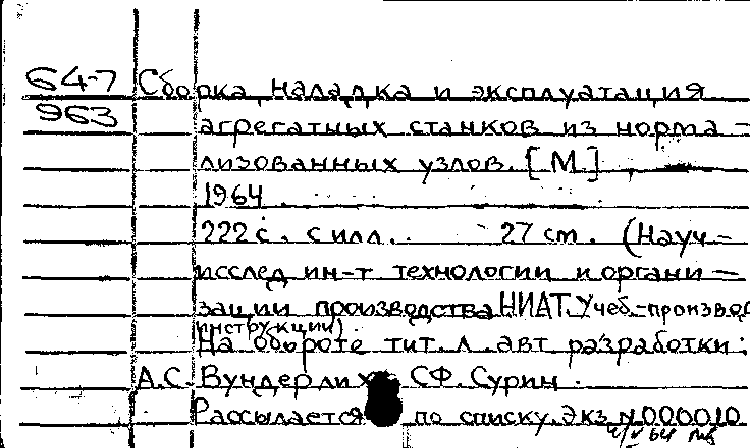 64-7 Сборка, наладка и эксплуатация
963
агрегатных станков из норма-
лизованных узлов. [М]
1964.
222с. с илл. 27 cm. (Науч.-
исслед ин-т технологии и органи-
зации производства НИАТ. Учеб.-производ
инструкции).
На обороте тит. л. авт разработки:
А.С. Вундерлих, СФ. Сурин.
Рассылается по списку. Экз №000010